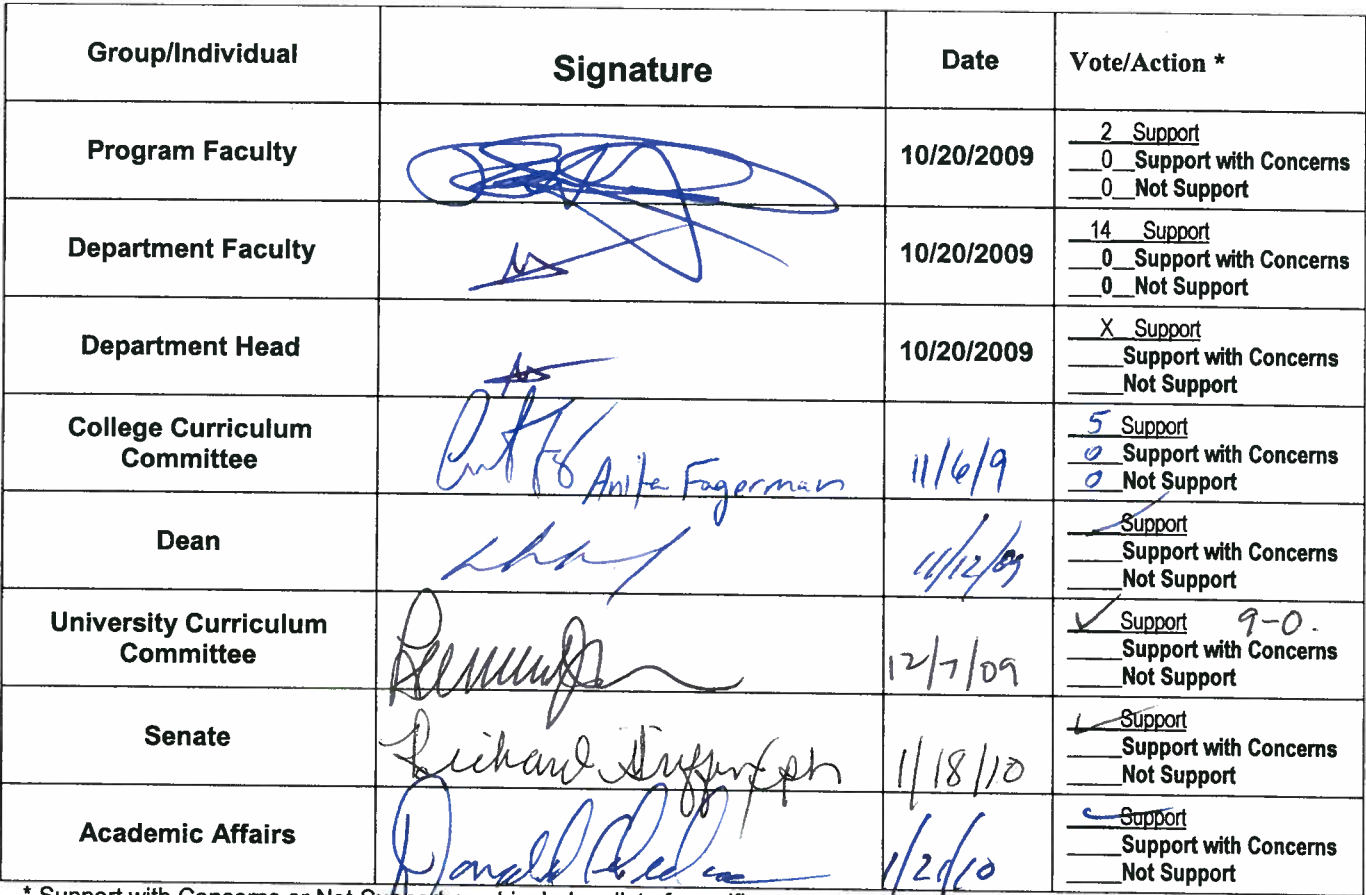 Group/Individual Signature Date Vote/Action *
Program Faculty 10/20/2009 2 Support
0 Support with Concerns
0 Not Support
Department Faculty 10/20/2009 14 Support
0 Support with Concerns
0 Not Support
Department Head 10/20/2009 X Support
Support with Concerns
Not Support
College Curriculum
Committee Anita Fagerman 11/6/9 5 Support
0 Support with Concerns
0 Not Support
Dean 11/12/09 Support
Support with Concerns
Not Support
University Curriculum
Committee 12/7/09 ✓ Support 9-0.
Support with Concerns
Not Support
Senate Richard 1/18/10 ✓ Support
Support with Concerns
Not Support
Academic Affairs Donald 1/21/10 Support
Support with Concerns
Not Support
* Support with Concerns or Not Support